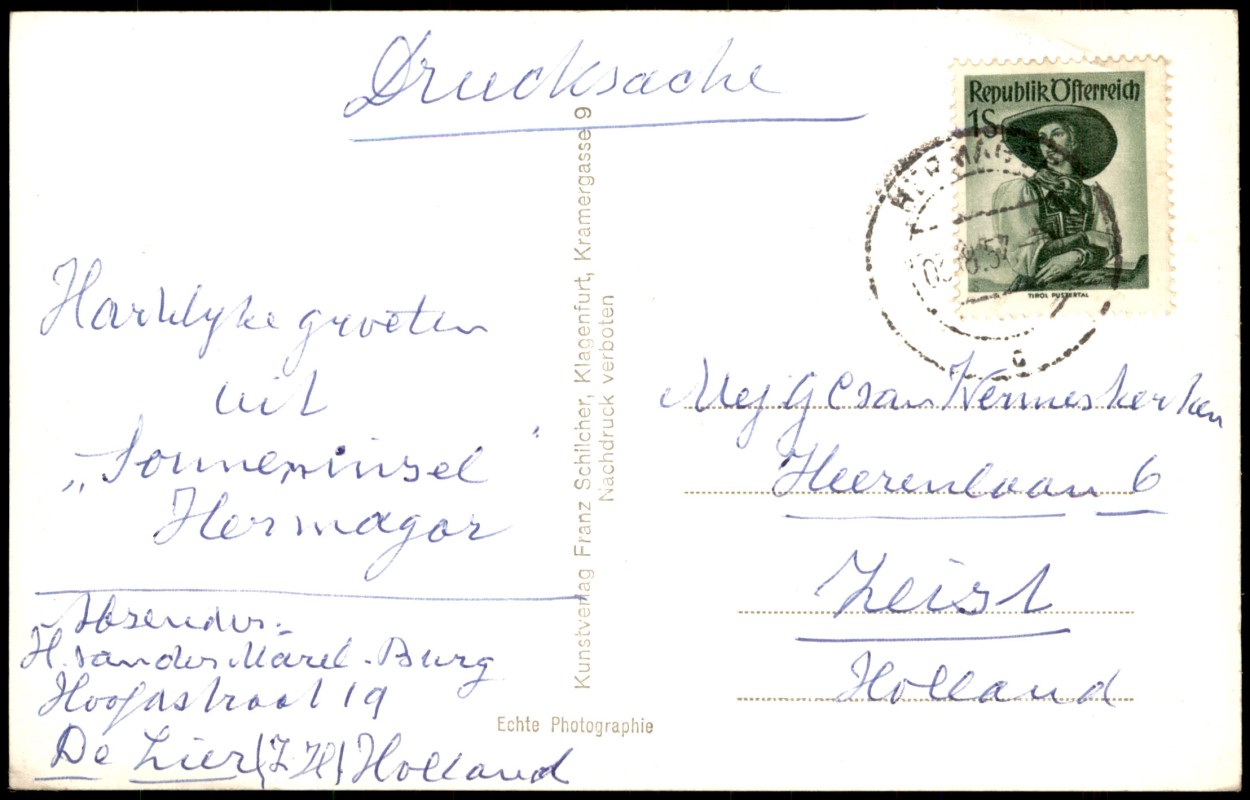 Drucksache
Republik Österreich
1S
TIROL PUSTERTAL
HERMAGOR
8.57
c
Hartelyke groeten
uit
„Sonneninsel"
Hermagor
Absender:
H. van der Marel-Burg
Hoofdstraat 19
De Lier (Z.H) Holland
Kunstverlag Franz Schilcher, Klagenfurt, Kramergasse 9
Nachdruck verboten
Echte Photographie
Mej G C van Hermeskerken
Heerenlaan 6
Zeist
Holland